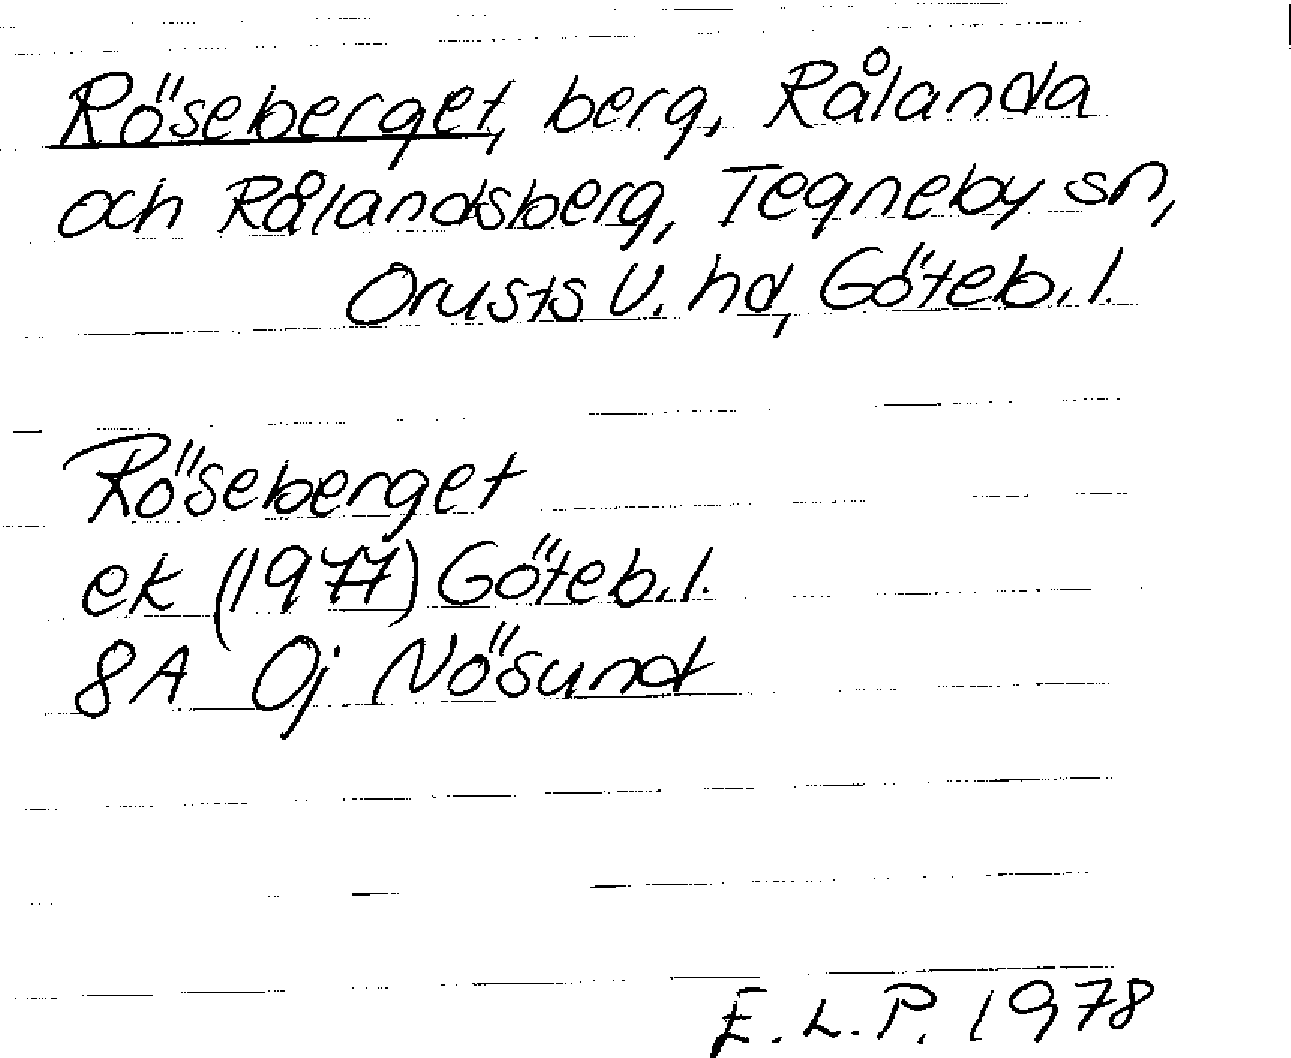 Röseberget, berg, Rålanda
och Rålandsberg, Tegneby sn,
Orusts V. hd, Göteb. l.
Röseberget
ek (1977) Göteb. l.
8A 0j Nösund
E. L. P. 1978